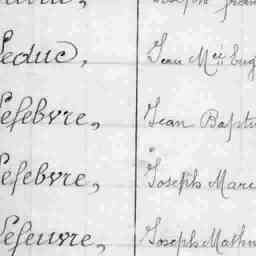 Leduc, Jean Mcii Eug
Lefebvre, Jean Bapti
Lefebvre, Joseph Marc
Lefeuvre, Joseph Mathu